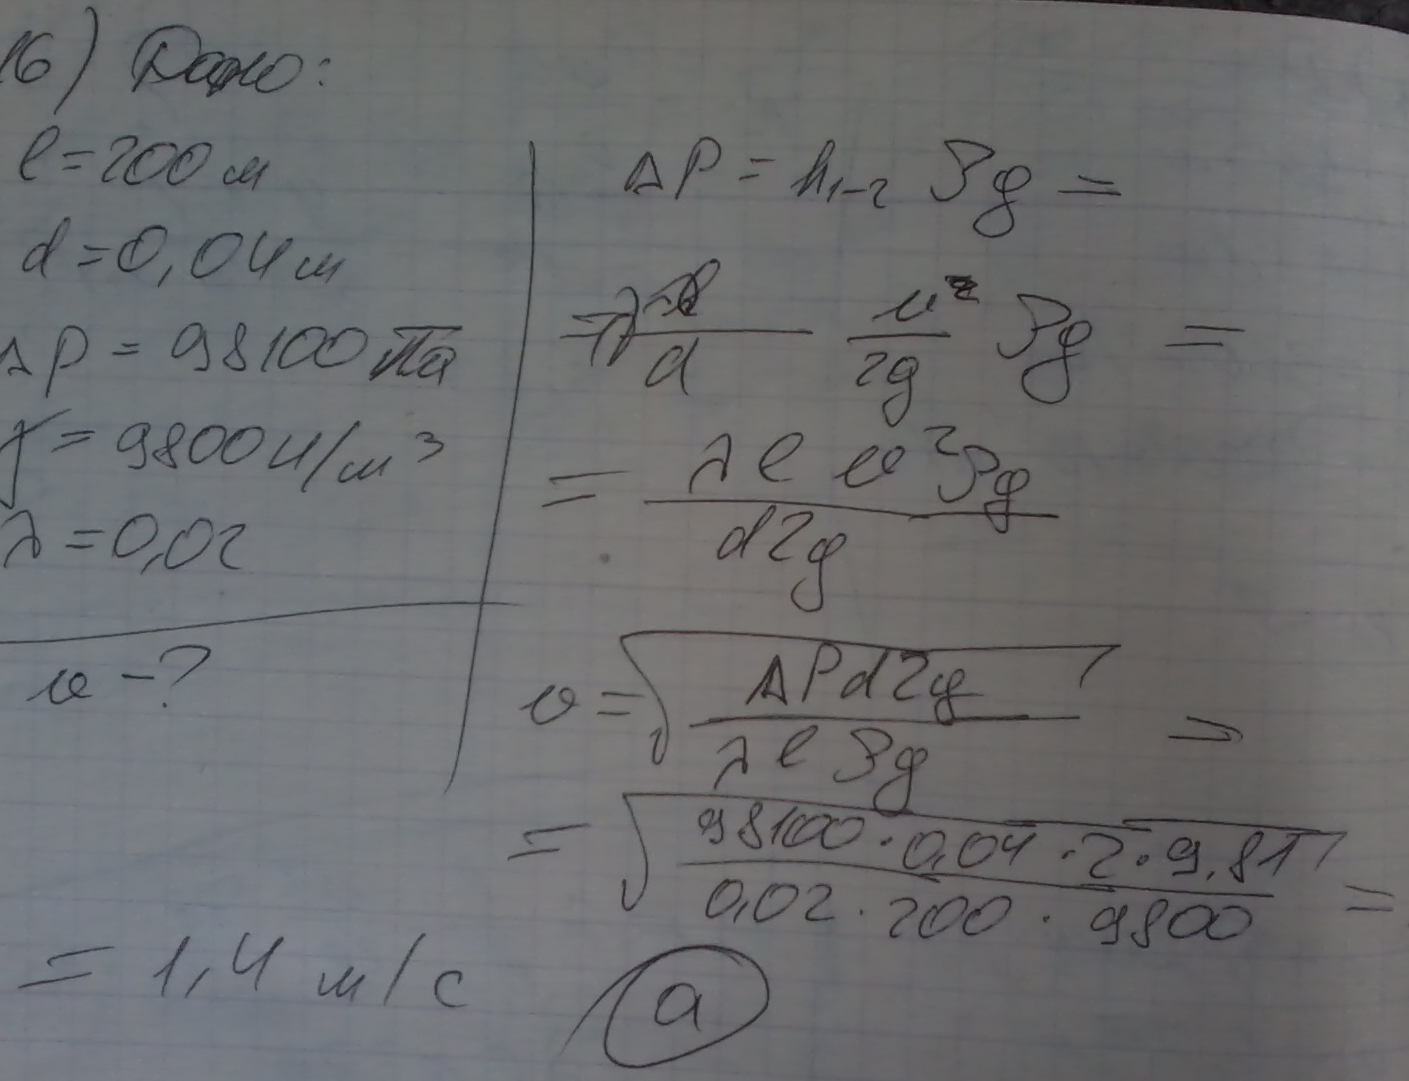 16) Дано:
l = 200 м
d = 0,04 м
ΔP = 98100 Па
γ = 9800 Н/м³
λ = 0,02
υ - ?
ΔP = h₁₋₂ ρg =
= λ l / d υ² / 2g ρg =
= λ l υ² ρg / d2g
υ = √(ΔP d 2g / λ l ρg) =
= √(98100 · 0,04 · 2 · 9,81 / 0,02 · 200 · 9800) =
= 1,4 м/с а